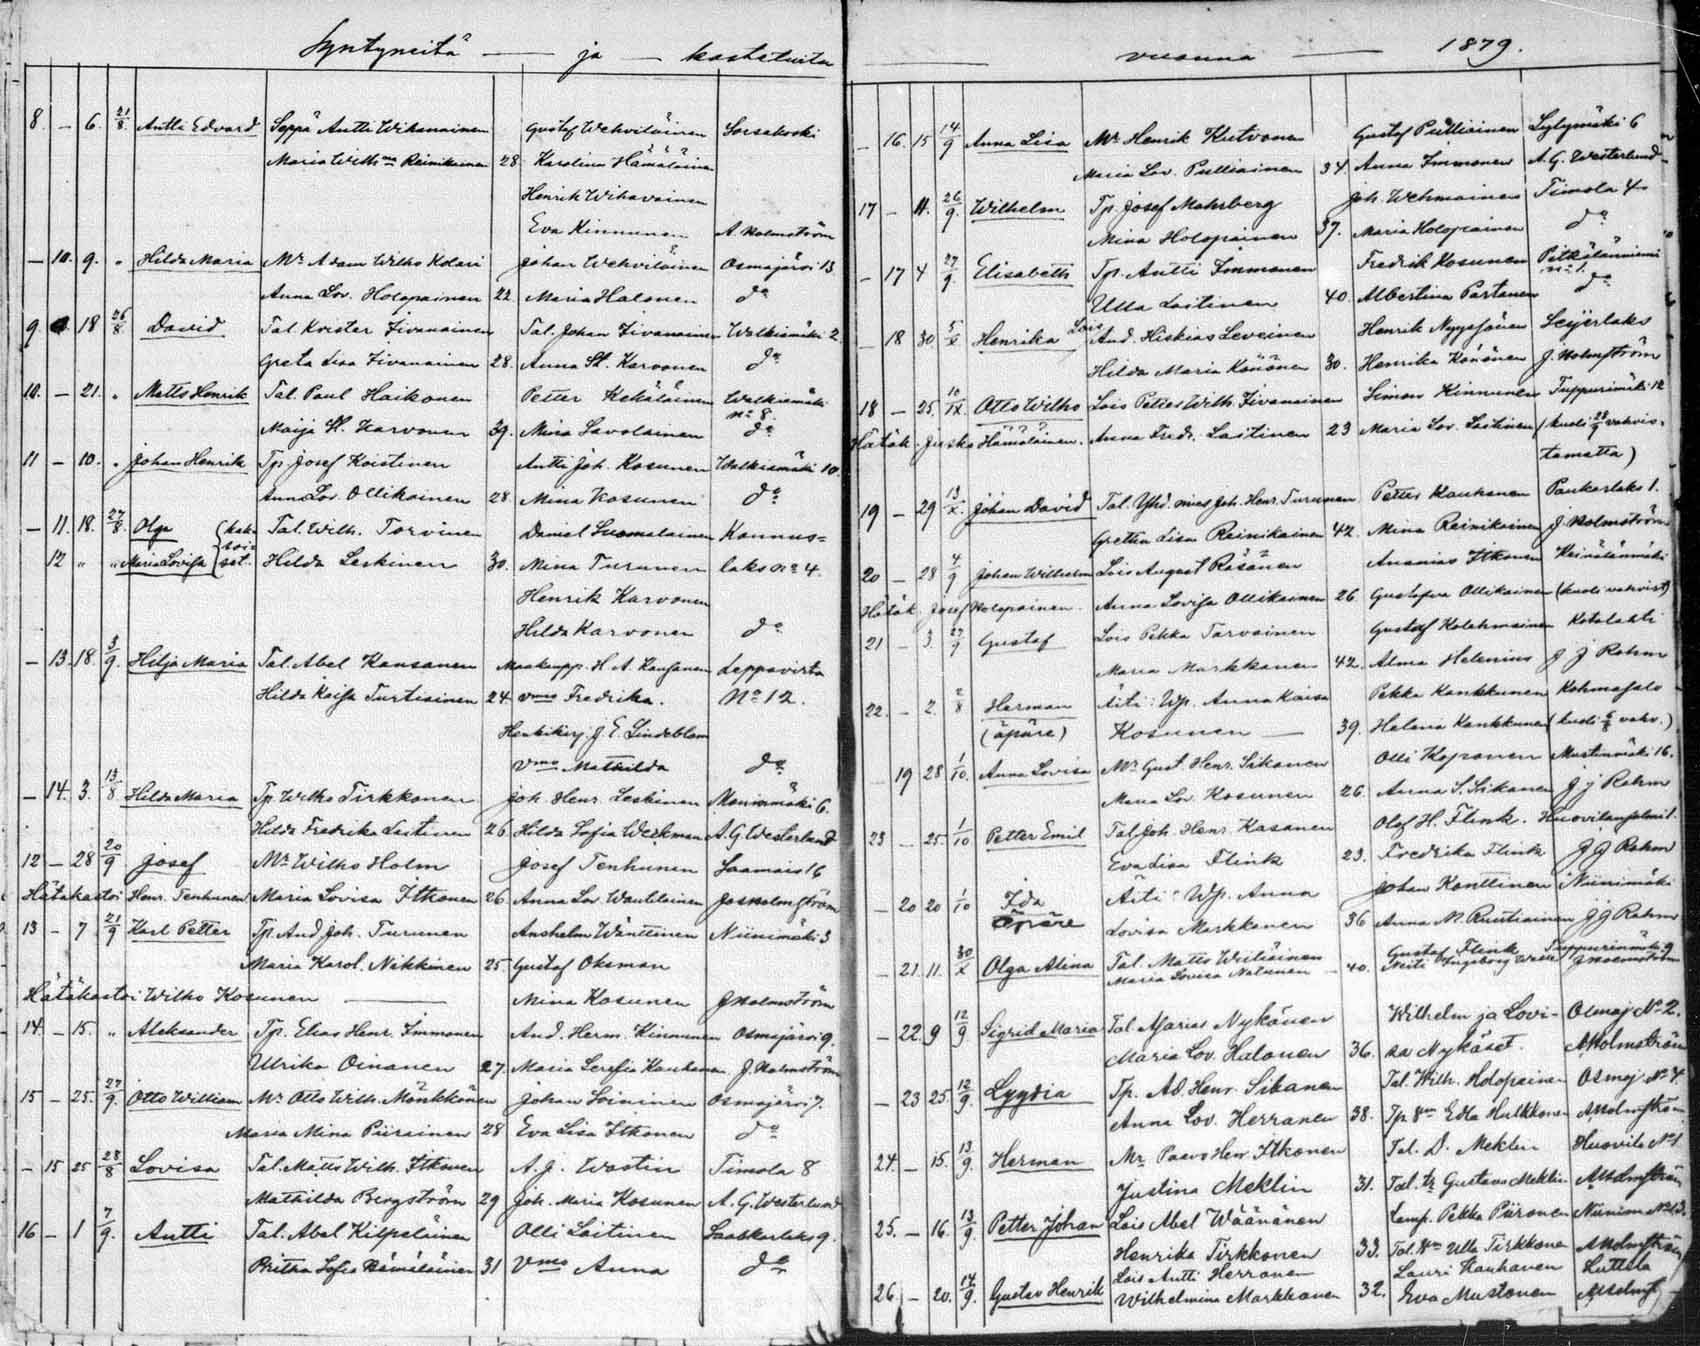 Syntyneitä — ja — kastetuita
8. — 6. 21/8. Antti Edvard Seppä Antti Wihanainen Gustaf Wehviläinen Sorsakoski
Maria Wilh:na Reinikainen 28. Karolina Hämäläinen
Henrik Wihavainen
Eva Kinnunen A. Holmström
— 10. 9. " Hilda Maria Mr Adam Wilho Kolari Johan Wehviläinen Osmajärvi 13
Anna Lov. Holopainen 22. Maria Halonen do
9 18 26/8. David Tal. Krister Iivanainen Tal. Johan Iivanainen Walkiamäki 2.
Greta Lisa Iivanainen 28. Anna St. Karvonen do
10. — 21. " Matts Henrik Tal. Paul Haikonen Petter Kekäläinen Walkiamäki
No 8.
Maija St. Karvonen 39. Mina Savolainen do
11 — 10. " Johan Henrik Tp. Josef Koistinen Antti Joh. Kosunen Walkiamäki 10.
Anna Lov. Ollikainen 28. Mina Kosunen do
— 11. 18. 27/8. Olga (kak- Tal. Wilh. Tarvinen Daniel Suomalainen Konnus=
soi-
12 " " Maria Lovisa set. Hilda Leskinen 30. Mina Turunen laks No 4.
Henrik Karvonen
Hilda Karvonen do
— 13. 18. 3/9. Hilja Maria Tal. Abel Kansanen Maakaupp. H. A. Kansanen Leppävirta
Hilda Kaisa Turtiainen 24 vmo Fredrika. No 12.
Henkikirj. J. E. Lindeblom
vmo Mathilda do
— 14. 3. 13/8 Hilda Maria Tp. Wilho Tirkkonen Joh. Henr. Leskinen Moninmäki 6.
Hilda Fredrika Laitinen 26. Hilda Sofia Werkman A. G. Westerlund
12 — 28 20/9 Josef Mr Wilho Holm Josef Tenhunen Saamais 16
Hätäkastoi Henr. Tenhunen Maria Lovisa Itkonen 26. Anna Lov. J. Holmström
13 — 7 21/9 Karl Petter Tp. And. Joh. Turunen Anshelm Wänttinen Niinimäki 3
Maria Karol. Nikkinen 25. Gustaf Oksman
Hätäkastoi Wilho Kosunen — Mina Kosunen J. Holmström
14. — 15. " Aleksander Tp. Elias Henr. Immonen And. Herm. Kinnunen Osmajärvi 9.
Ulrika Oinonen 27. Maria Serefia J. Holmström
15 — 25. 27/9. Otto William Mr Otto Wilh. Mönkkönen Johan Loininen Osmajärvi 7.
Maria Mina Piirainen 28 Eva Lisa Itkonen do
— 15 25 28/8 Lovisa Tal. Matts Wilh. Itkonen A. J. Wostin Timola 8
Mathilda Bergström 29 Joh. Maria Kosunen A. G. Westerlund
16 — 1 7/9. Antti Tal. Abel Kilpeläinen Olli Laitinen Saahkarlaks 9.
Britha Sofia Hämäläinen 31 Vmo Anna do
— vuonna — 1879.
— 16. 15 14/9 Anna Lisa Mr Henrik Kutvonen Gustaf Pulliainen Syltymäki 6
Maria Lov. Pulliainen 34. Anna Immonen A. G. Westerlund
17 — 11. 26/9. Wilhelm Tp. Josef Mahrberg Joh. Wehmainen Timola 4
Mina Holopainen 37. Maria Holopainen do
— 17 4 27/9. Elisabeth Tp. Antti Immonen Fredrik Kosunen Pitkälänniemi
No 1.
Ulla Laitinen 40. Albertina Partanen do
— 18 30. 5/X Henrika Lois And. Hiskias Leveinen Henrik Nyyssönen Leijerlaks
Hilda Maria Könönen 30. Henrika Könönen J. Holmström
18 — 25. 10/IX Otto Wilho Lois Petter Wilh. Iivanainen Simon Kinnunen Tuppurimäki 12
Hätäk. Juska Hämäläinen. Anna Fredr. Laitinen 23 Maria Lov. Laitinen (kuoli 28/9 vahvis-
tamatta)
19 — 29 13/X. Johan David Tal. Yhd. mies Joh. Henr. Turunen Petter Kauhanen Paukarlaks 1.
Gretha Lisa Reinikainen 42. Mina Reinikainen J. Holmström
20 — 28 4/9 Johan Wilhelm Lois August Räsänen Ananias Itkonen Heinälänmäki
Hätäk. Josef Holopainen. Anna Lovisa Ollikainen 26 Gustafva Ollikainen (kuoli vahvist)
21 — 3 27/9 Gustaf Lois Pekka Tarvainen Gustaf Kolehmainen Kotalahti
Maria Markkanen 42. Alma Helenius J J Rahm
22. — 2. 2/8 Herman Äiti: Wp. Anna Kaisa Pekka Kankkunen Kohmasalo
(äpäre) Kosunen — 39. Helena Kankkunen (kuoli vahv.)
— 19 28 1/10. Anna Lovisa Mr Gust. Henr. Sikanen Olli Koponen Mustinmäki 16.
Maria Lov. Kosunen 26. Anna S. Sikanen J J Rahm
23 — 25. 1/10 Petter Emil Tal. Joh. Henr. Kasanen Olof H. Flink. Huovilansalmi 1.
Eva Lisa Flink 23. Fredrika Flink J J Rahm
— 20 20 1/10 Ida Äiti: Wp. Anna Johan Konttinen Niinimäki
Äpäre Lovisa Markkanen 36 Anna M. Ruutiainen J J Rahm
— 21. 11. 30/X Olga Alina Tal. Matts Witiäinen Gustaf Flink Tuppurinmäki 9
Maria Lovisa Natunen — 40. Neiti Ingeborg J Holmström
— 22. 9 12/9 Sigrid Maria Tal. Nykänen Wilhelm ja Lovi- Osmaj No 2.
Maria Lov. Halonen 36. sa Nykäset. A Holmström
— 23 25. 12/9. Lyydia Tp. Ad. Henr. Sikanen Tal. Wilh. Holopainen Osmaj. No 4
Anna Lov. Herranen 38. Tp Vmo Edla Hulkkonen A Holmström
24. — 15. 13/9. Herman Mr Paavo Henr. Itkonen Tal. D. Meklin Huovila No 1
Justina Meklin 31. Tal. tr Gustava Meklin A Holmström
25. — 16. 13/9. Petter Johan Lois Abel Wäänänen Lamp. Pekka Piironen Niinim No 13.
Henrika Tirkkonen 33. Tal. Vmo Ulla Tirkkonen A Holmström
26. — 20. 14/9. Gustav Henrik Lois Antti Herranen Lauri Kauhanen Luttila
Wilhelmina Markkanen 32. Eva Mustonen A Holmst